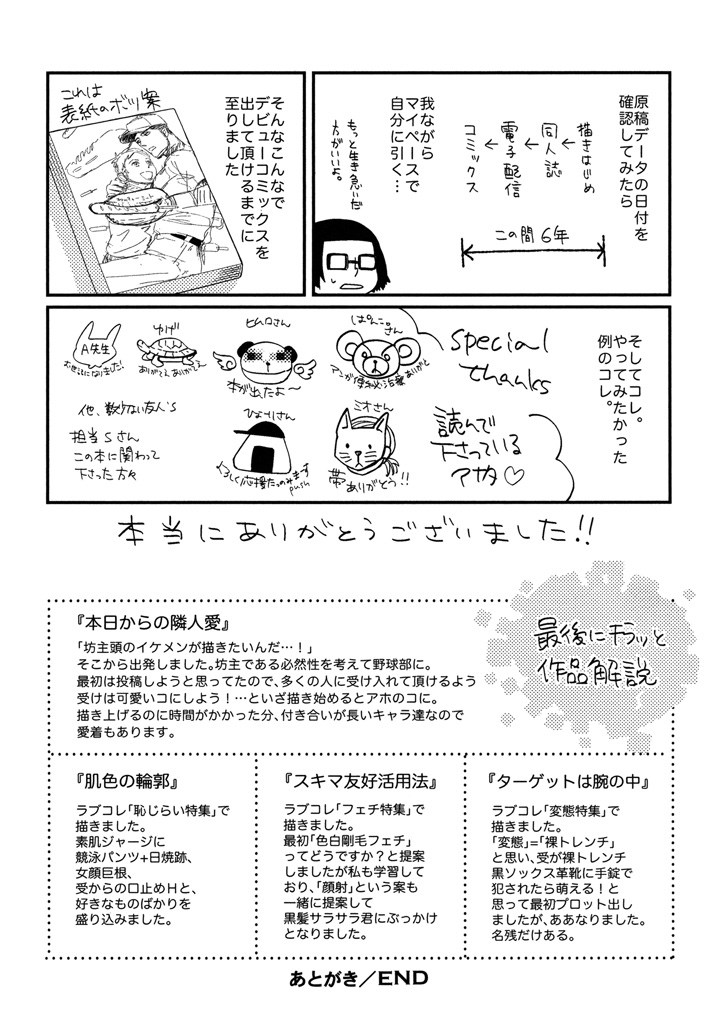 原稿データの日付を
確認してみたら
描きはじめ
↓
同人誌
↓
電子配信
↓
コミックス
この間6年
我ながら
マイペースで
自分に引く…
もっと生き急いだ
方がいいよ。
そんなこんなで
デビューコミックスを
出して頂けるまでに
至りました
これは
表紙のボツ案
そしてコレ。
やってみたかった
例のコレ。
special
thanks
読んで
下さっている
アナタ♡
ぱんこ。さん
ヒムロさん
本が出たよ〜
ゆげ
ありがてえありがてえ
A先生
お世話になりました!
ミオさん
帯ありがとう!!
ひょりさん
よろしく応援たのみます
push
他、数々ない友人's
担当Sさん
この本に関わって
下さった方々
本当にありがとうございました!!
最後にチラッと
作品解説
『本日からの隣人愛』
「坊主頭のイケメンが描きたいんだ…!」
そこから出発しました。坊主である必然性を考えて野球部に。
最初は投稿しようと思ってたので、多くの人に受け入れて頂けるよう
受けは可愛いコにしよう!…といざ描き始めるとアホのコに。
描き上げるのに時間がかかった分、付き合いが長いキャラ達なので
愛着もあります。
『肌色の輪郭』
ラブコレ「恥じらい特集」で
描きました。
素肌ジャージに
競泳パンツ+日焼跡、
女顔巨根、
受からの口止めHと、
好きなものばかりを
盛り込みました。
『スキマ友好活用法』
ラブコレ「フェチ特集」で
描きました。
最初「色白剛毛フェチ」
ってどうですか?と提案
しましたが私も学習して
おり、「顔射」という案も
一緒に提案して
黒髪サラサラ君にぶっかけ
となりました。
『ターゲットは腕の中』
ラブコレ「変態特集」で
描きました。
「変態」=「裸トレンチ」
と思い、受が裸トレンチ
黒ソックス革靴に手錠で
犯されたら萌える!と
思って最初プロット出し
ましたが、ああなりました。
名残だけある。
あとがき/END